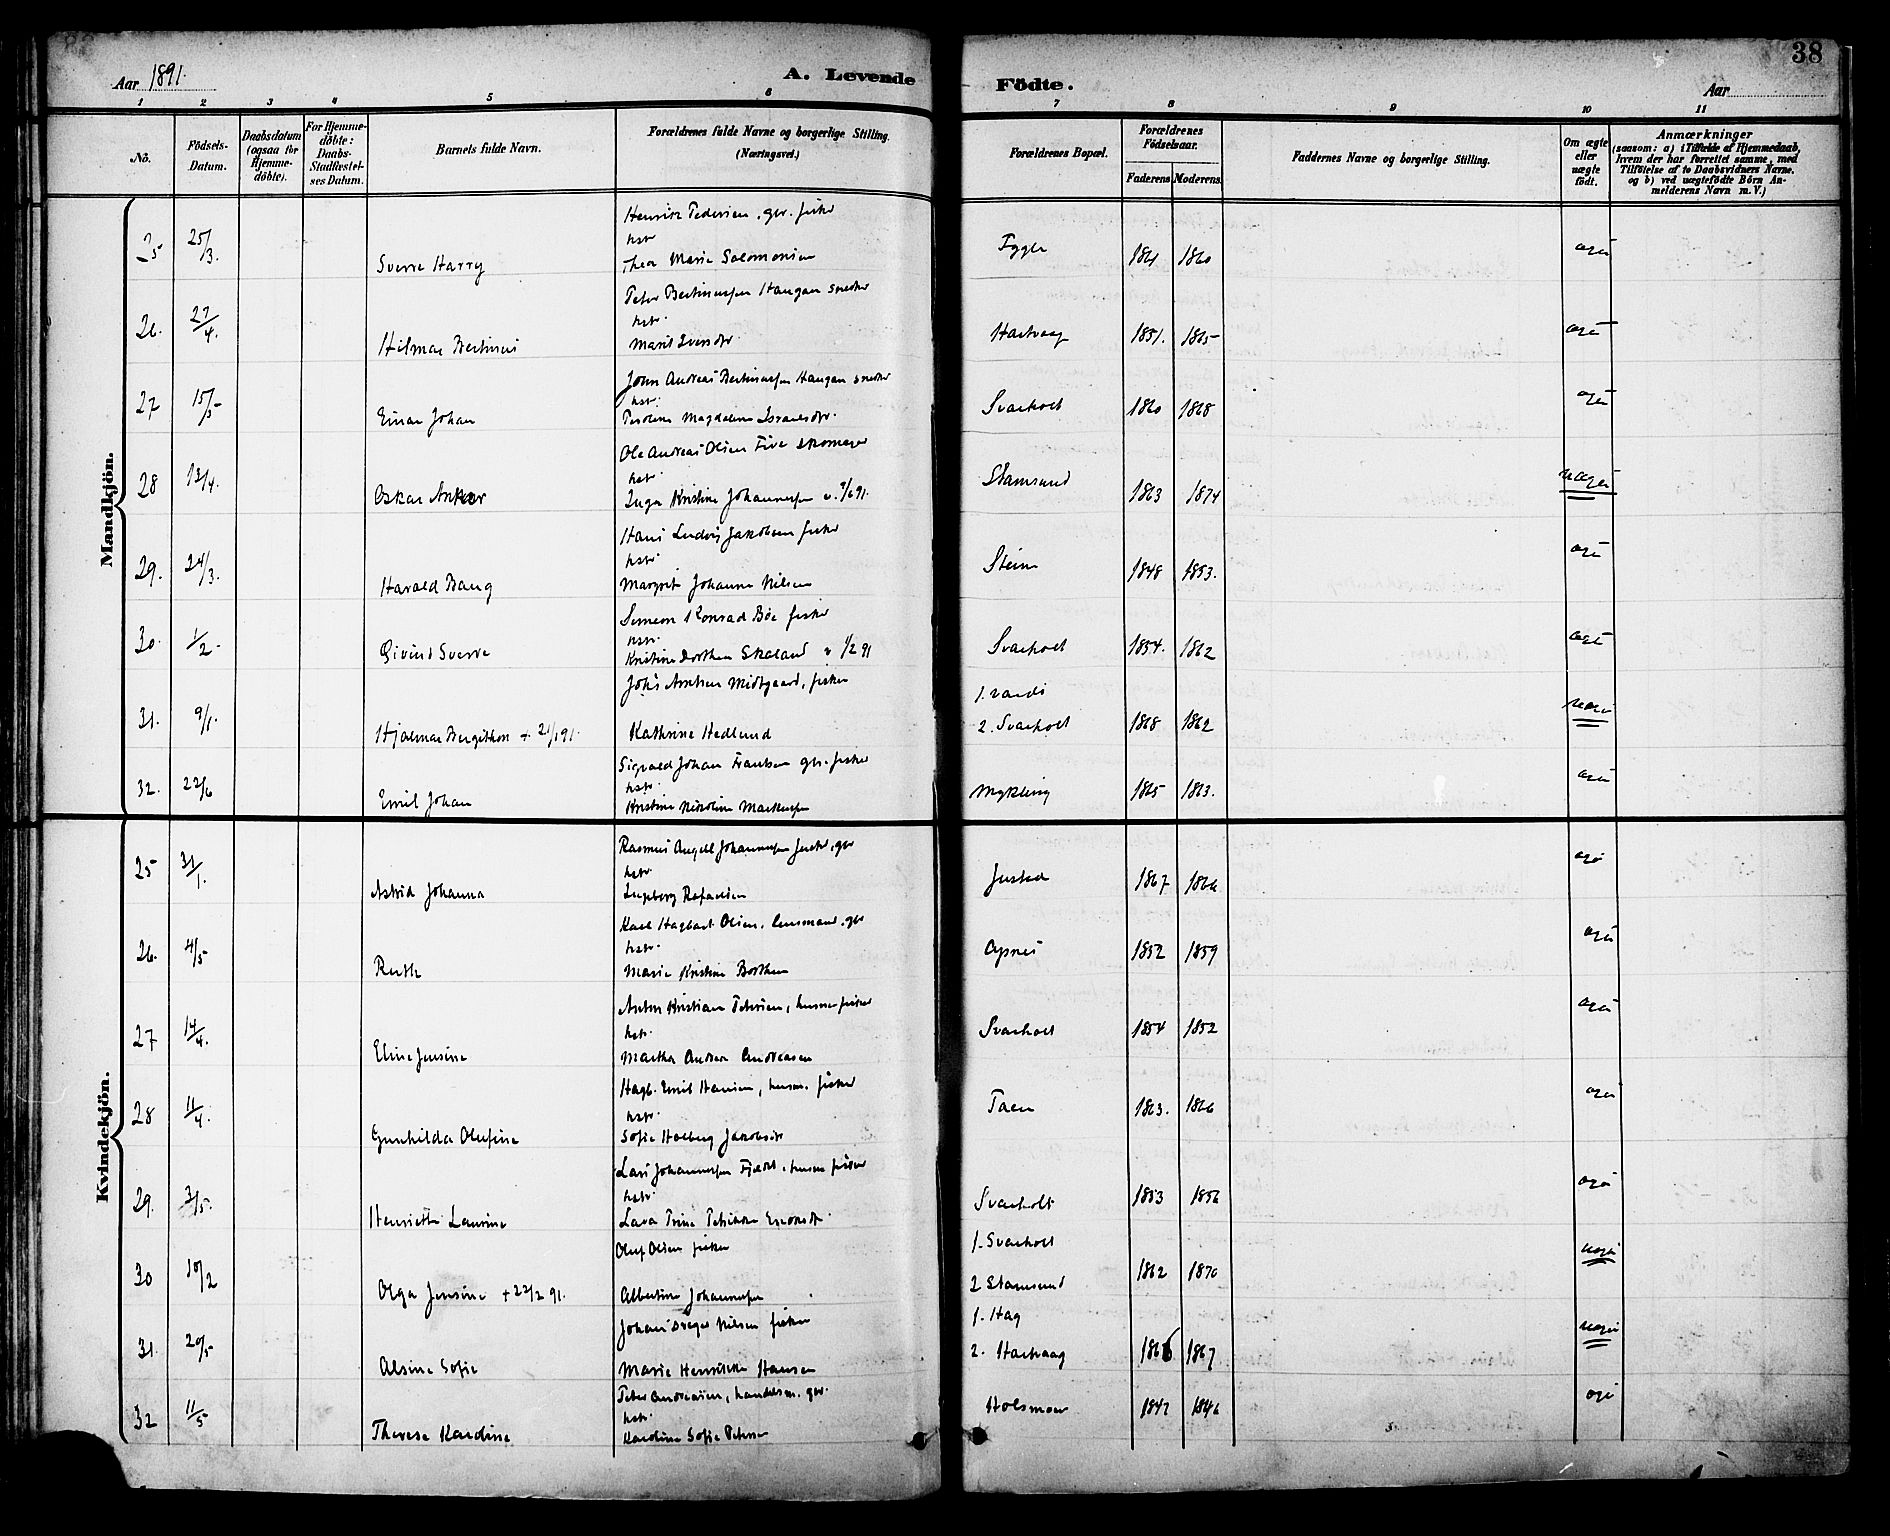 38
Aar 1891.
A. Levende Födte.
Aar
1 2 3 4 5 6 7 8 9 10 11
Nô.
Födsels-Datum.
Daabsdatum (ogsaa for Hjemme-döbte).
For Hjemme-döbte: Daabs-Stadfæstel-ses Datum.
Barnets fulde Navn.
Forældrenes fulde Navne og borgerlige Stilling. (Næringsvei.)
Forældrenes Bopæl.
Forældrenes Födselsaar.
Faderens. Moderens.
Faddernes Navne og borgerlige Stilling.
Om ægte eller uægte födt.
Anmærkninger (saasom: a) i Tilfælde af Hjemmedaab, hvem der har forrettet samme, med Tilföielse af to Daabsvidners Navne, og b) ved uægtefödte Börn An-melderens Navn m. V.)
Mandkjön.
Henrik Pedersen, gbr. fisker
hstr.
25 25/3. Sverre Harry Thea Marie Salomonsen Fygle 1861 1860 ægte
Peter Bertinussen Haugan snedker
hstr.
26. 27/4. Hilmar Bertinus Marit Iversdtr. Hartvaag 1851. 1865 ægte
John Andreas Bertinussen Haugan snedker
hstr.
27 15/5 Einar Johan Magdalena Israelsdtr. Svarholt 1860 1868 ægte
Ole Andreas Olsen Five skomager
hstr.
28 13/4. Oskar Anker Inga Kristine Johannessen Stamsund 1863 1874 uægte
Hans Ludvig Jakobsen fisker
hstr.
29. 24/3. Harald Baug Margret Johanna Nilsen Steine 1848 1853. ægte
Simeon Konrad Böe fisker
hstr.
30. 1/2. Eivind Sverre Kristine Dorthea Skaland v 1/2 91 Svarholt 1854. 1862 ægte
Johs Arntsen Midtgaard, fisker 1. Vardö
31. 9/1. Hjalmar Bergithon + 21/1 91. Kathrine Hedlund 2. Svarholt 1868 1862 uægte
Sigvald Johan Frantsen gbr. fisker
hstr.
32. 22/6 Emil Johan Kristine Nikoline Markussen Mykleng 1865 1863. ægte
Kvindekjön.
Rasmus Angell Johannessen fisker, gbr
hstr.
25 31/1. Astrid Johanna Ingeborg Rafaelsen Justad 1867 1866 ægte
Karl Hagbart Olsen, lensmand, gbr
hstr.
26. 4/5 Ruth Marie Kristine Borthen Opnes 1852 1859 ægte
Anton Kristian Petersen, husm fisker
hstr.
27 14/4. Eline Jensine Martha Andrea Andreasen Svarholt 1854 1852 ægte
Hagb. Emil Hansen, husm. fisker
hstr.
28 11/4. Gunhilda Olufine Sofie Holberg Jakobsdtr Taen 1863. 1866 ægte
Lars Johannessen Fjeldet, husm fisker
hstr.
29. 3/5. Henriette Laurine Lava Trine Petrikke Svarholt 1853 1856 ægte
Oluf Olsen fisker 1. Svarholt
30 10/2 Olga Jensine + 22/2 91. Albertine Johannessen 2 Stamsund 1862 1870 uægte
Johan Dreyer Nilsen fisker 1. Hag
31. 20/5 Alsine Sofie Marie Henrikke Hansen 2. Hartvaag 1866 1867 uægte
Peter Andreasen, handelsm. gbr.
hstr.
32 11/5 Therese Kardine Kardine Sofie Petersen Holsmoen 1847 1846 ægte